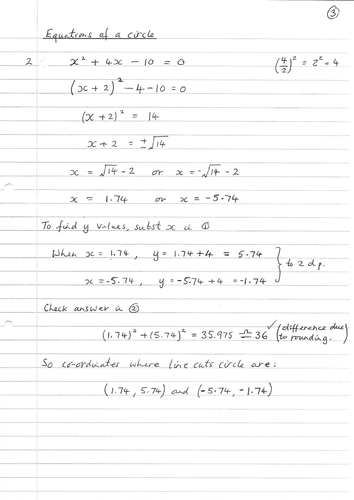 ③
Equations of a circle
2 x² + 4x - 10 = 0 (4/2)² = 2² = 4
(x + 2)² - 4 - 10 = 0
(x + 2)² = 14
x + 2 = ±√14
x = √14 - 2 or x = -√14 - 2
x = 1.74 or x = -5.74
To find y values, subst x in ①
When x = 1.74, y = 1.74 + 4 = 5.74
x = -5.74, y = -5.74 + 4 = -1.74 } to 2 d.p.
Check answer in ②
(1.74)² + (5.74)² = 35.975 ≏ 36 ✓ (difference due to rounding.
So co-ordinates where line cuts circle are:
(1.74, 5.74) and (-5.74, -1.74)